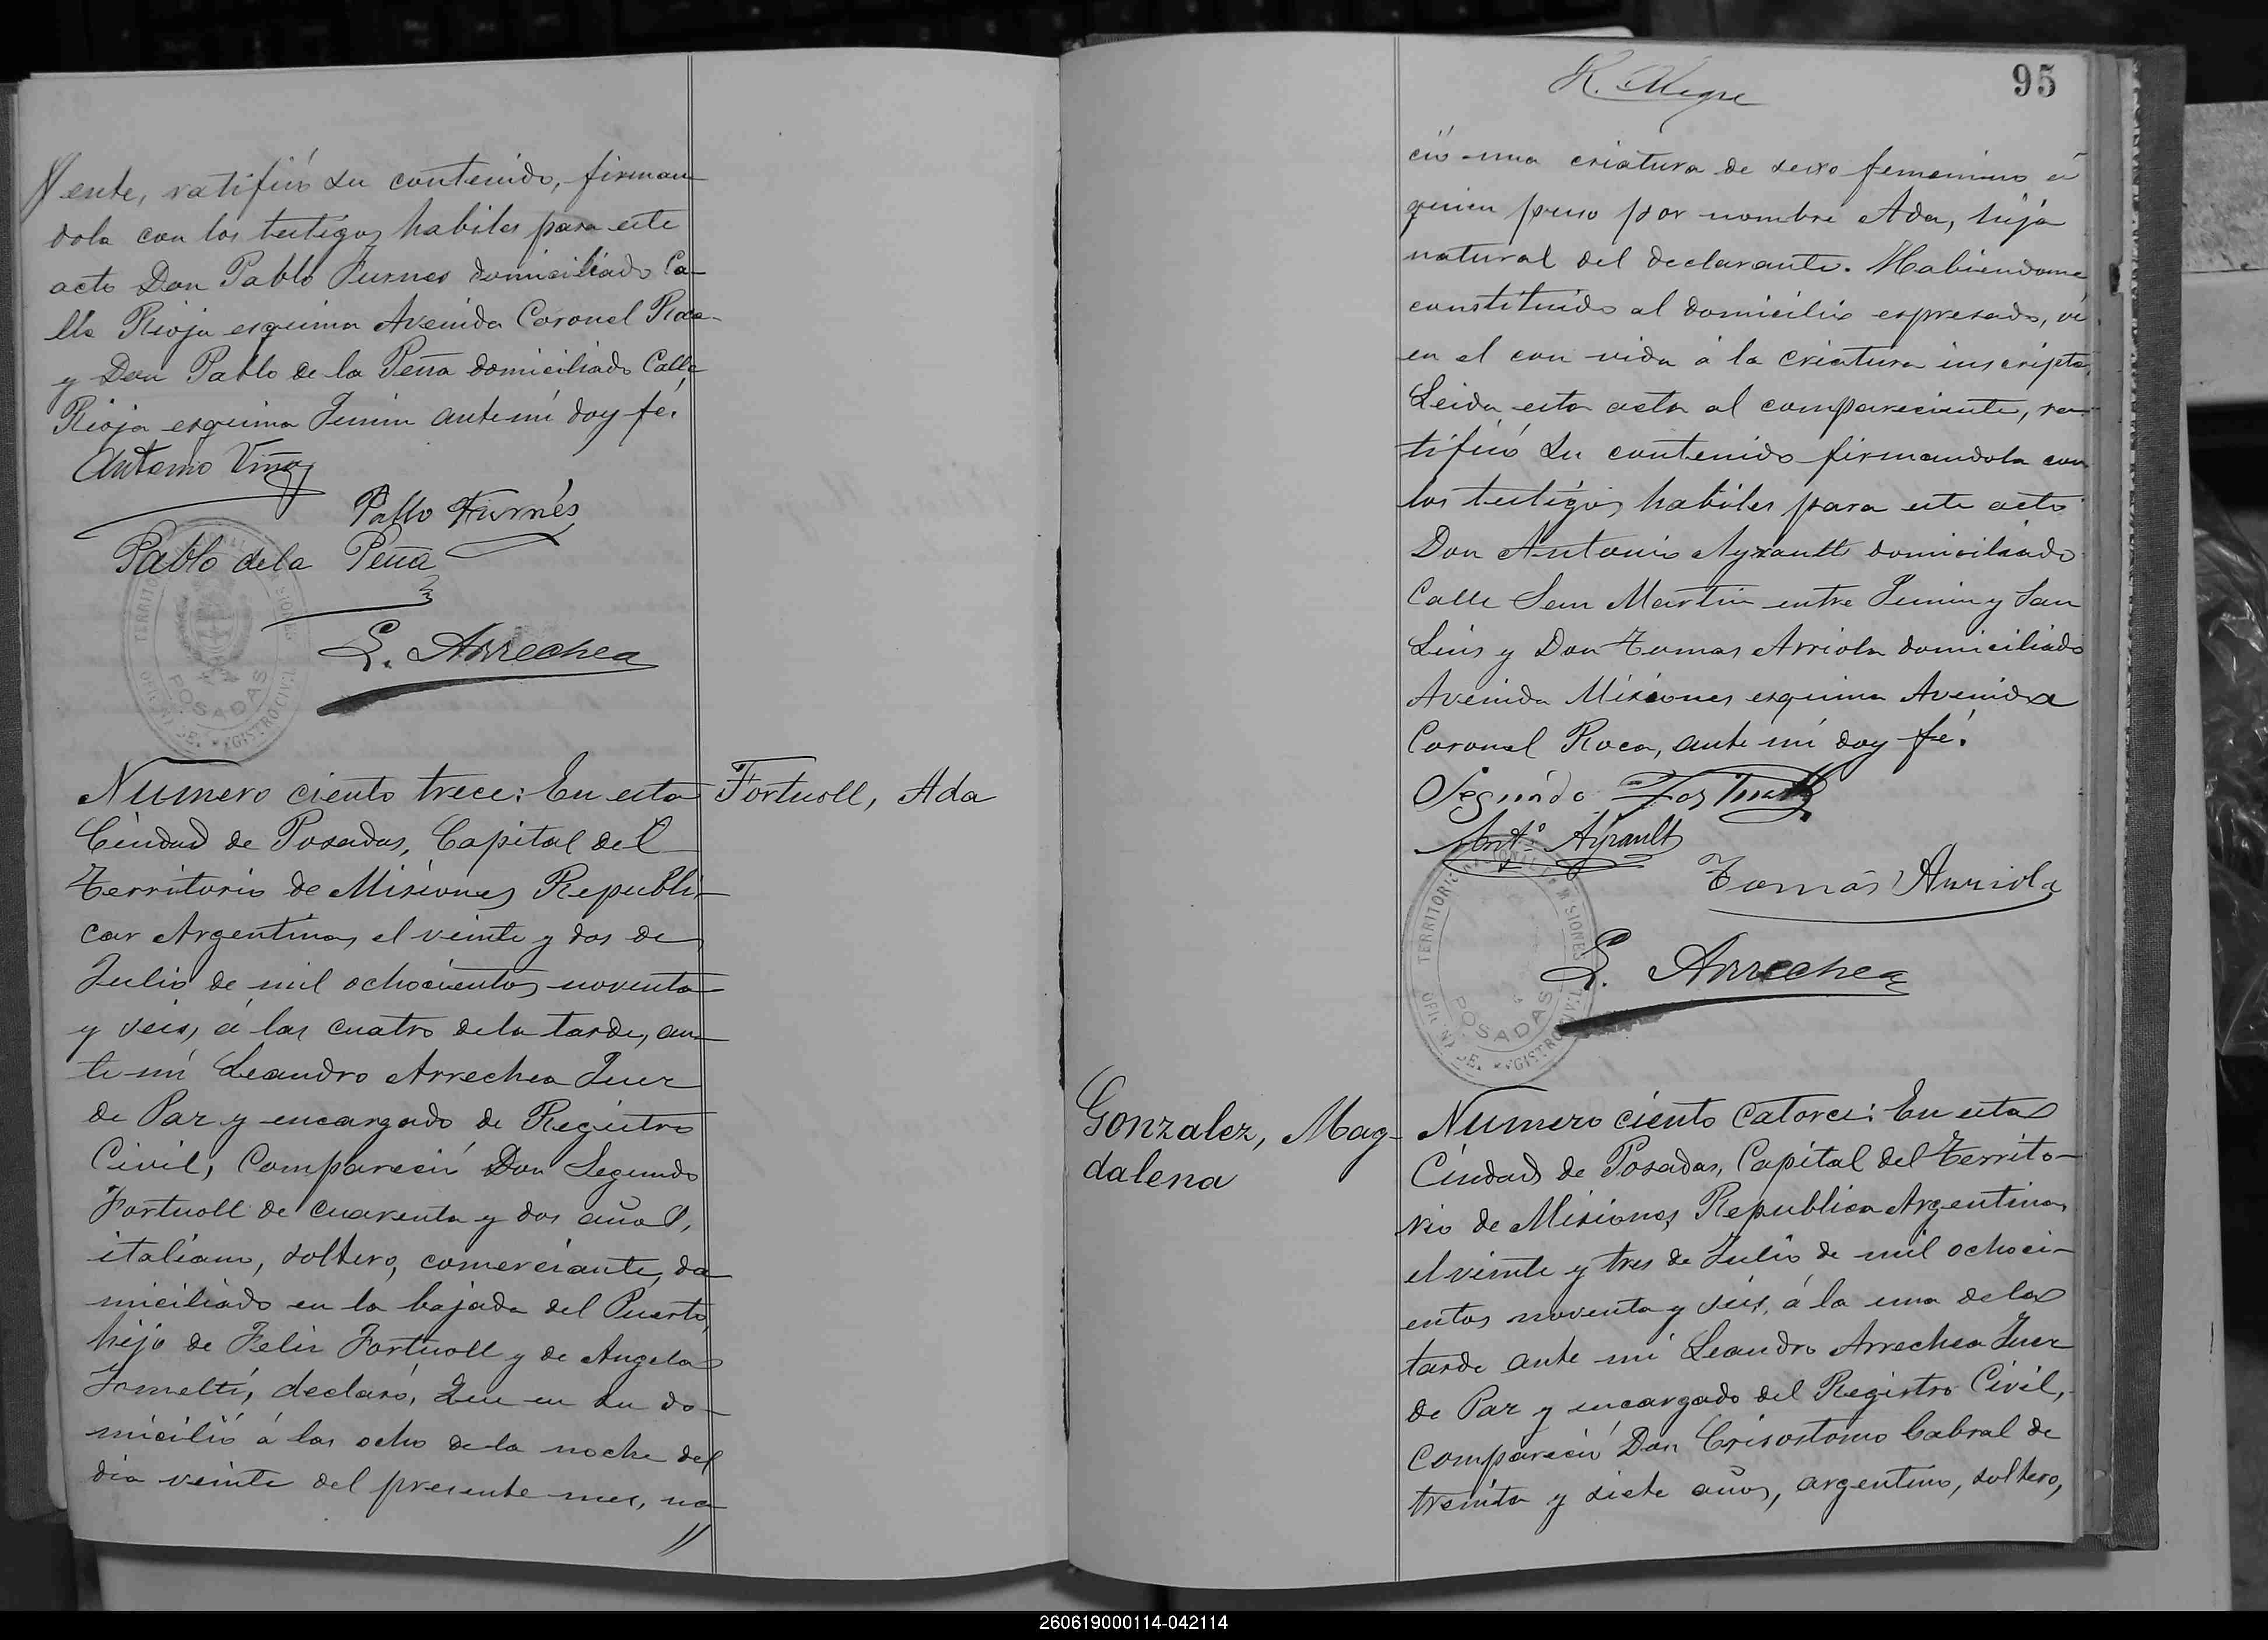 ente, ratificó su contenido, firman-
dola con los testigos habiles para este
acto Don Pablo Furnes domiciliado Ca-
lle Rioja esquina Avenida Coronel Roca
y Don Pablo de la Peña domiciliado Calle
Rioja esquina Junin ante mi doy fé.
Antonio Viñas
Pablo Furnés
Pablo de la Peña
L. Arrechea
TERRIT MISIONES
POSADAS
REGISTRO CIVIL
Numero ciento trece: En esta
Ciudad de Posadas, Capital del
Territorio de Misiones Republi-
ca Argentina, el veinte y dos de
Julio de mil ochocientos noventa
y seis, á las cuatro de la tarde, an-
te mí Leandro Arrechea Juez
de Paz y encargado de Registro
Civil, Compareció Don Segundo
Fortuoll de cuarenta y dos años,
italiano, soltero, comerciante, do-
miciliado en la bajada del Puerto,
hijo de Felix Fortuoll y de Angela
declaró, Que en su do-
micilio á las ocho de la noche del
dia veinte del presente mes, na-
//
Fortuoll, Ada
R. Alegre
95
ció una criatura de sexo femenino á
quien puso por nombre Ada, hija
natural del declarante. Habiendome
constituido al domicilio espresado, ví
en el con vida á la criatura inscripta.
Leida esta acta al compareciente, ra-
tificó su contenido firmandola con
los testigos habiles para este acto
Don Antonio Ayrault domiciliado
Calle San Martin entre Junin y San
Luis y Don Tomas Arriola domiciliado
Avenida Misiones esquina Avenida
Coronel Roca, ante mí doy fé.
Segundo Fortuoll
Ant.º Ayrault
Tomás Arriola
L. Arrechea
TERRITORIO NACIONAL MISIONES
POSADAS
REGISTRO CIVIL
Gonzalez, Mag-
dalena
Numero ciento catorce: En esta
Ciudad de Posadas, Capital del Territo-
rio de Misiones, Republica Argentina,
el veinte y tres de Julio de mil ochoci-
entos noventa y seis, á la una de la
tarde ante mí Leandro Arrechea Juez
de Paz y encargado del Registro Civil,
compareció Don Crisostomo Cabral de
treinta y siete años, argentino, soltero,
260619000114-042114